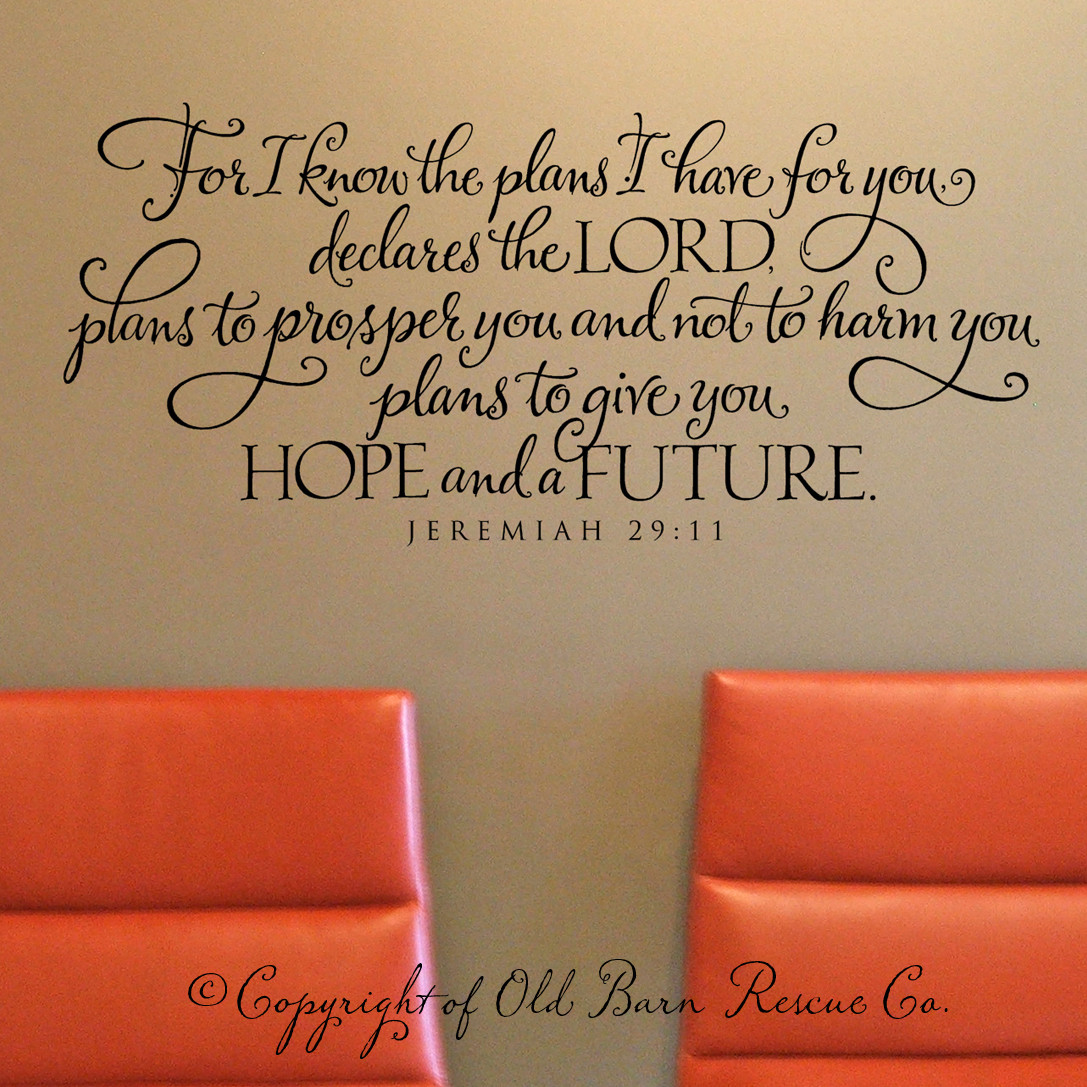 For I know the plans I have for you,
declares the LORD,
plans to prosper you and not to harm you,
plans to give you,
HOPE and a FUTURE.
JEREMIAH 29:11
©Copyright of Old Barn Rescue Co.